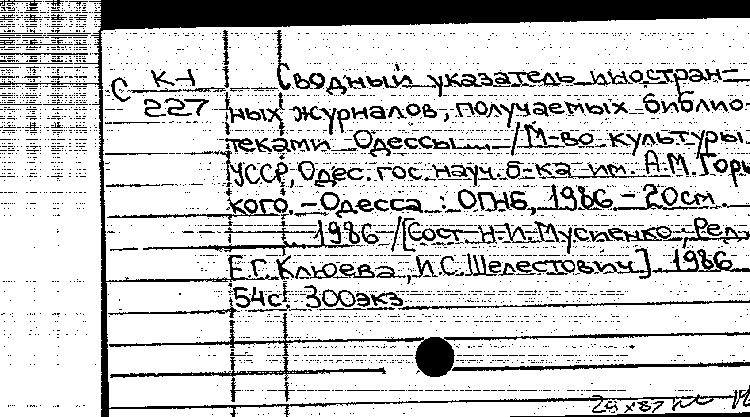 С К-1
227
Сводный указатель иностран=
ных журналов, получаемых библио
теками Одессы... / М-во культуры
УССР, Одес. гос. науч. б-ка им. А.М. Горь
кого. – Одесса : ОГНБ, 1986 – 20см.
... 1986 / [Сост. Н.И. Мусиенко ; Ред.
Е.Г. Клюева, И.С. Шелестович]. 1986
54с. 300экз